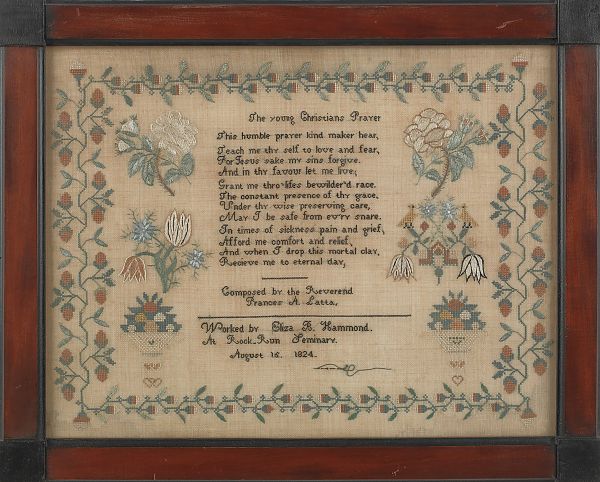 The young Christians Prayer
This humble prayer kind maker hear,
Teach me thy self to love and fear,
For Jesus sake my sins forgive.
And in thy favour let me live;
Grant me thro lifes bewilder'd race.
The constant presence of thy grace,
Under thy wise preserving care,
May I be safe from evry snare.
In times of sickness pain and grief,
Afford me comfort and relief,
And when I drop this mortal clay,
Recieve me to eternal day,
Composed by the Reverend
Frances A. Latta,
Worked by Eliza B. Hammond.
At Rock-Run Seminary.
August 16. 1824.